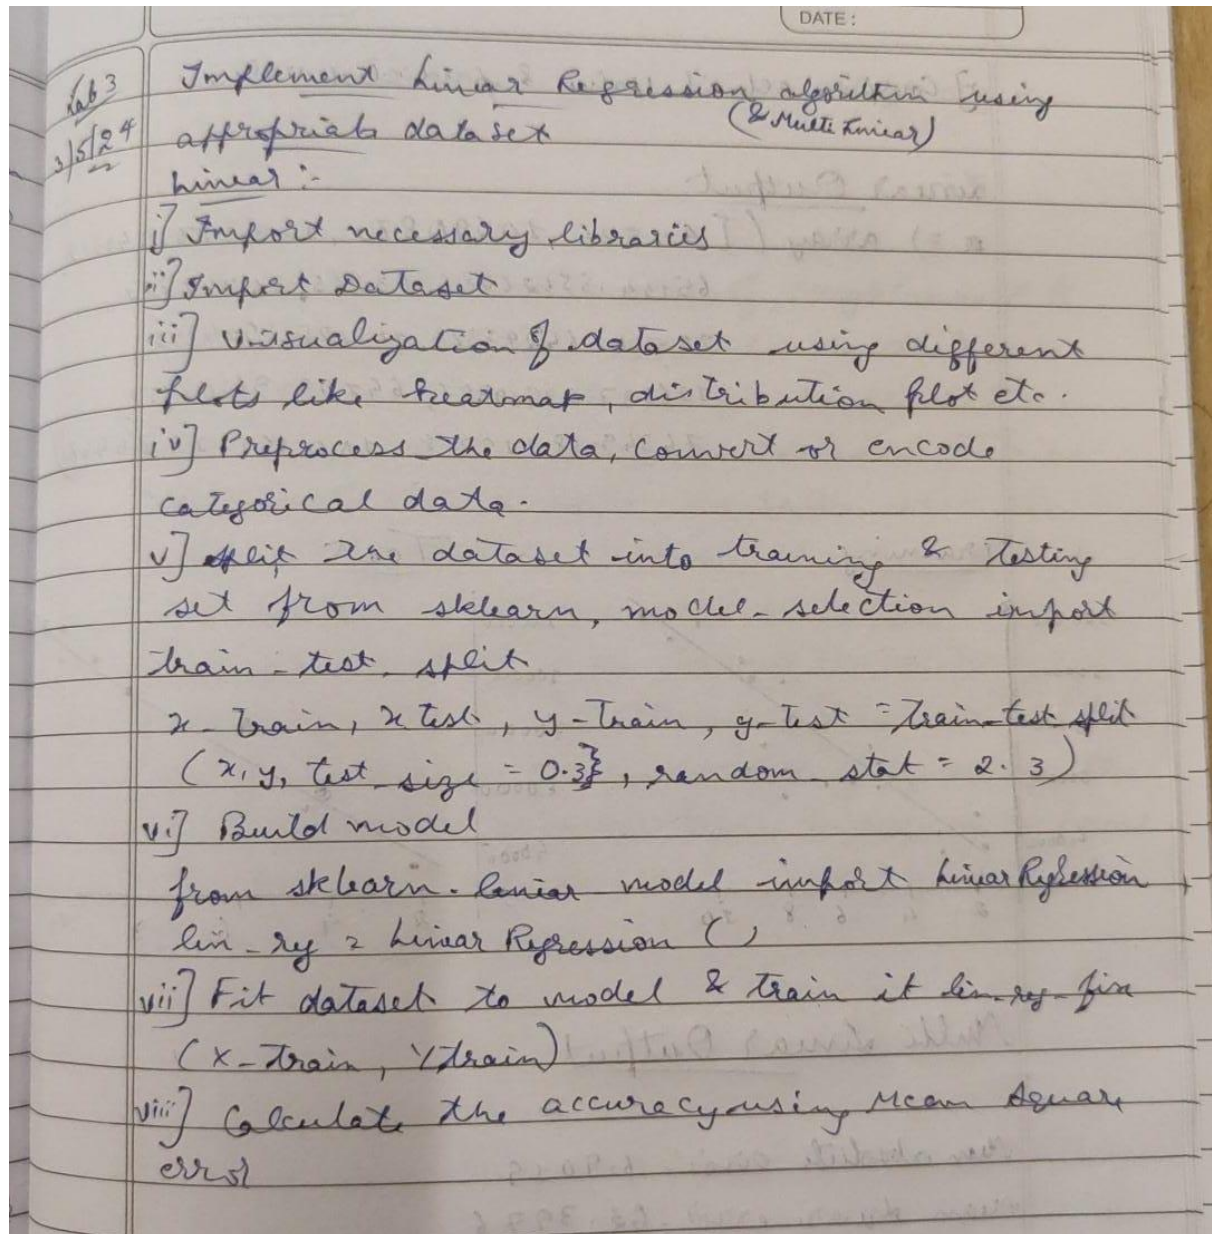 DATE :
Lab 3
3/5/24
Implement Linear Regression algorithm using
(& Multi Linear)
appropriate dataset
Linear :-
i] Import necessary libraries
ii] Import Dataset
iii] Visualization of dataset using different
plots like heatmap, distribution plot etc.
iv] Preprocess the data, convert or encode
categorical data.
v] split the dataset into training & testing
set from sklearn, model-selection import
train-test split
x-train, x test, y-train, y-test = train-test split
(x, y, test size = 0.3}, random stat = 2.3)
vi] Build model
from sklearn. linear model import Linear Regression
lin-reg = Linear Regression ()
vii] Fit dataset to model & train it lin-reg-
(X-train, Y train)
viii] Calculate the accuracy using Mean Square
error